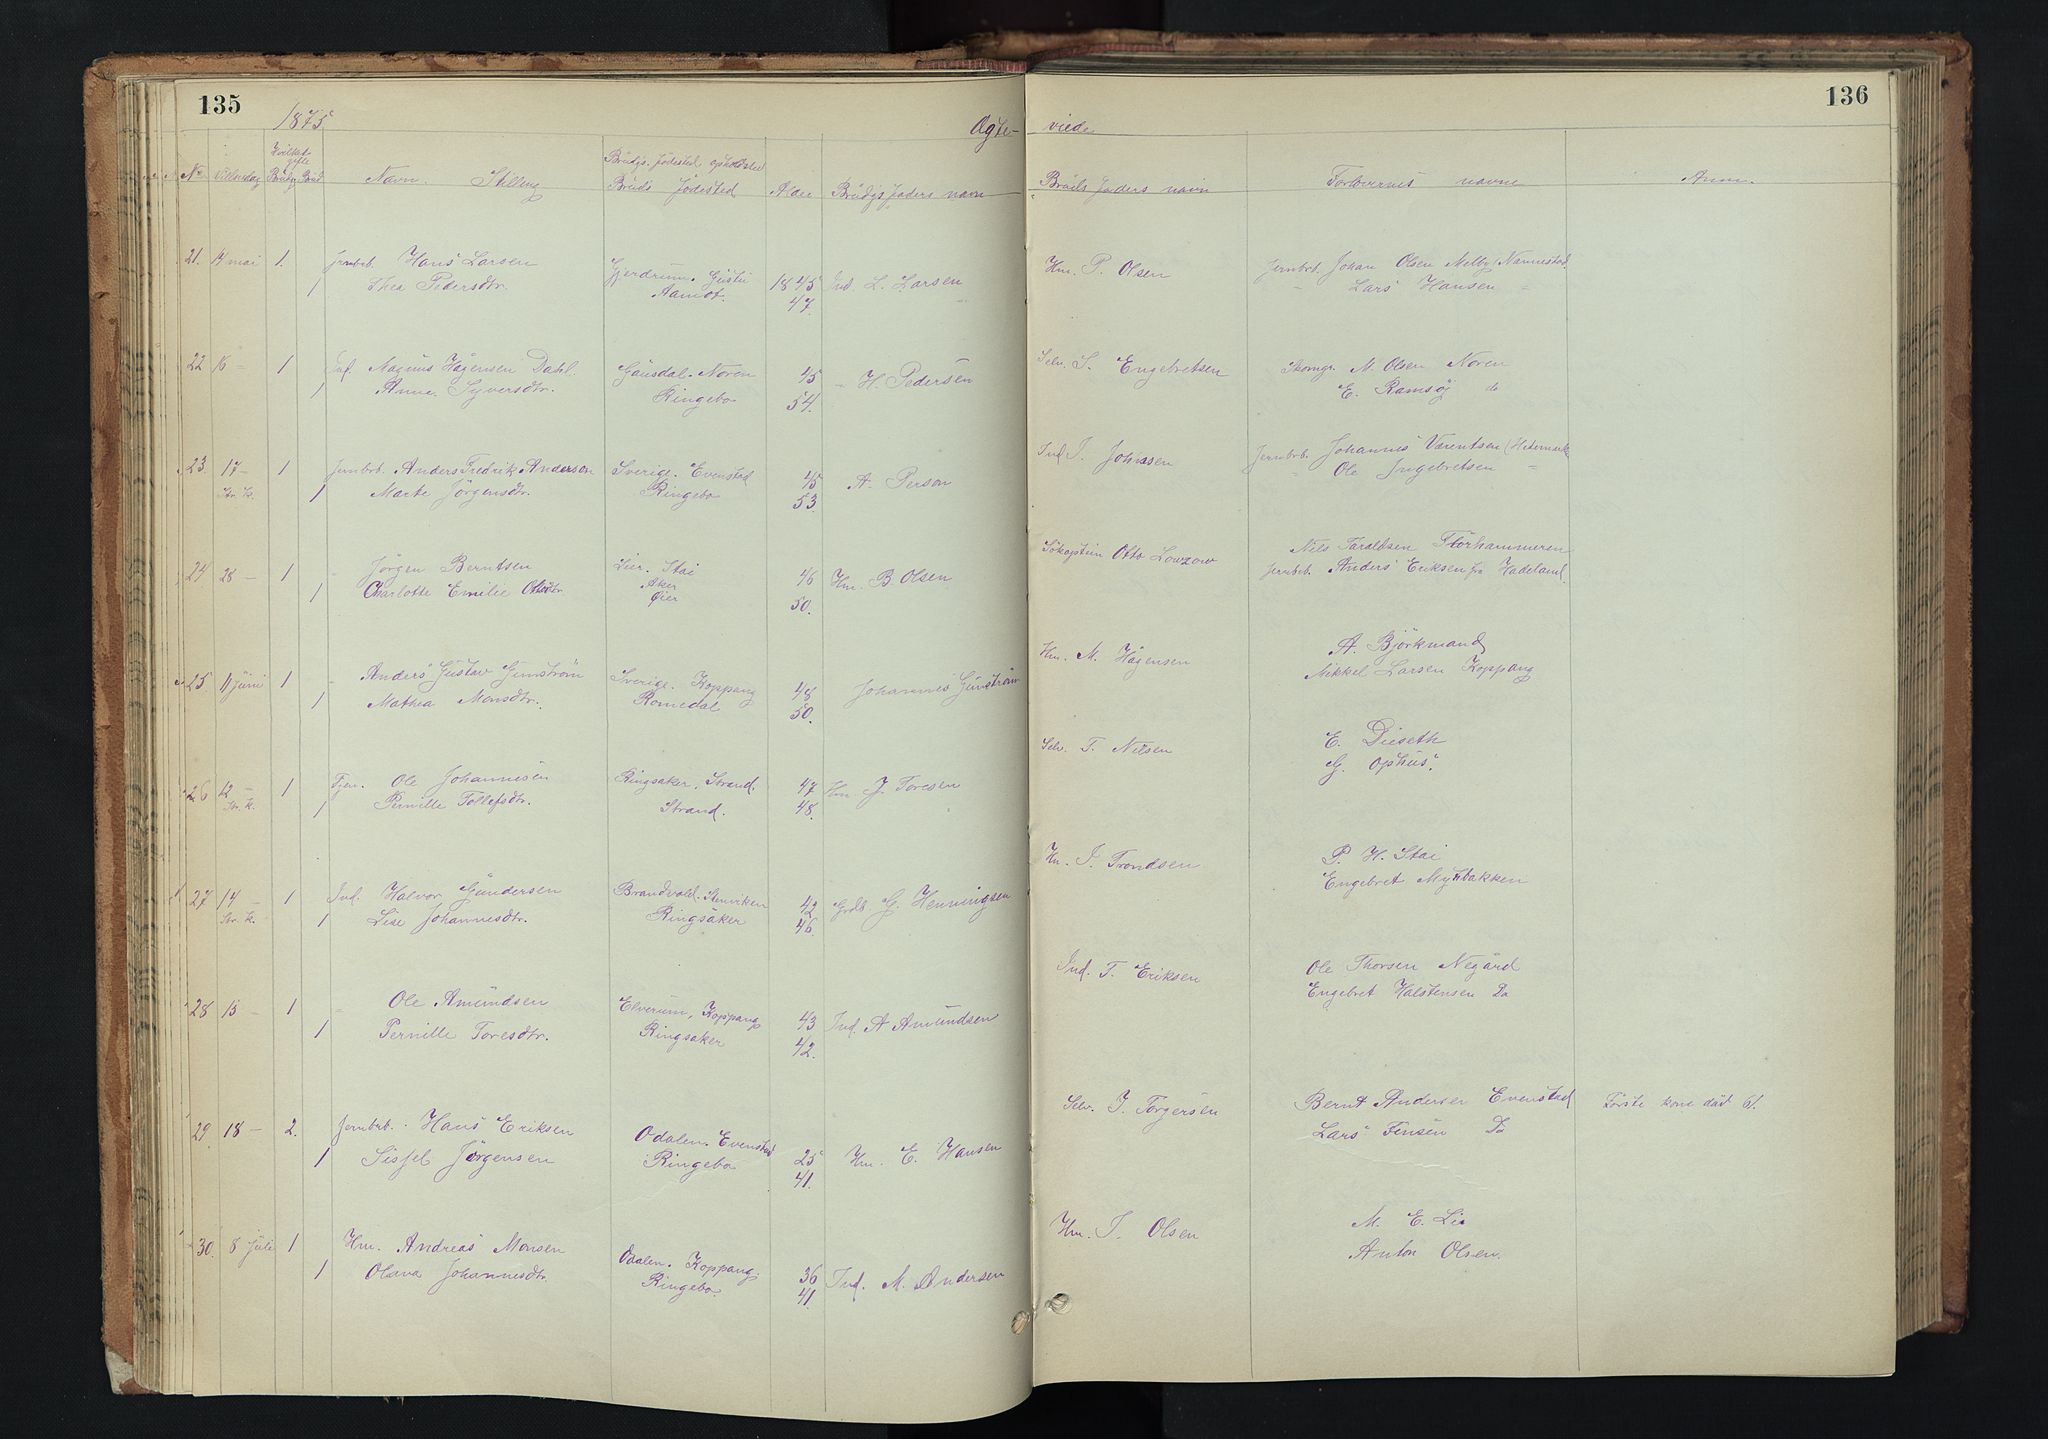 135
136
1875
Ægte-
viede
No
Vielsesdag
Hvilket gifte
Brudg. Brud
Navn Stilling
Brudgs. fødested opholdsted
Bruds fødested
Alder
Brudgs faders navn
Bruds faders navn
Forlovernes navne
Anm.
21. 14 mai 1. Jernbrb. Hans Larsen Gjerdrum. 1845 Ind. L. Larsen Hm. P. Olsen Jernbrb. Johan Olsen Melby
1 Thea Pedersdtr. Aamot. 47. " Lars Hansen "
22 16 - 1 Ind. Magnus Hagensen Dahl. Gausdal. Noren 45 - H. Pedersen Selv. S. Engebretsen M. Olsen Noren
1 Anne Syversdtr. Ringebo 54. E. Ramsøj do
23. 17- 1 Jernbrb. Anders Fredrik Anderson Sverige. Evenstad 45 A. Person Ind J. Johnsen Jernbrb. Johannes Varentsen (Hedemark
Str. K. 1 Marte Jörgensdtr. Ringebo 53. " Ole Ingebretsen "
24 28 - 1 - Jørgen Berntsen Lier. Stai 46 Hm. B. Olsen Søkaptein Otto Lowzow Nils Taraldsen Storhammeren
Aker
1 Charlotte Emilie Ottosdtr Øier 50. Jernbrb. Anders Eriksen fra Hadeland.
25. 11 juni 1 - Anders Gustav Gunström Sverige. Koppang 48 Johannes Gunström Hm. M. Hagensen A. Björkmand
1 Mathea Monsdtr. Romedal 50. Mikkel Larsen Koppang
26 12 - 1 Tjen. Ole Johannesen Ringsaker. Strand. 47 Hm. J. Toresen Selv. T. Nilsen E. Diseth
Str. K. 1 Pernille Tollefsdtr. Strand. 48. G. Ophus.
27 14 - 1 Ind. Halvor Gundersen Brandvold. 42 Grdb. G. Henningsen Hm. J. Trondsen P. H. Stai
Str. K. 1 Lise Johannesdtr. Ringsaker 46. Engebret Myrbakken
28 15 - 1 - Ole Amundsen Elverum, Koppang 43 Ind. A Amundsen Ind. T. Eriksen Ole Thorsen Negård
1 Pernille Toresdtr. Ringsaker 42. Engebret Halstensen Do
29. 18 - 2. Jernbrb. Hans Eriksen Odalen. Evenstad 25 Hm. E. Hansen Selv. J. Torgersen Bernt Andersen Evenstad Første kone død 61.
1 Sissel Jørgensen Ringebo 41. Lars Jensen Do
30. 8 Juli 1 Hm. Andreas Monsen Odalen. Koppang. 36 Ind. M. Andersen Hm. J. Olsen M. E. Lie
1 Olava Johannesdtr. Ringebo. 41. Anton Olsen.